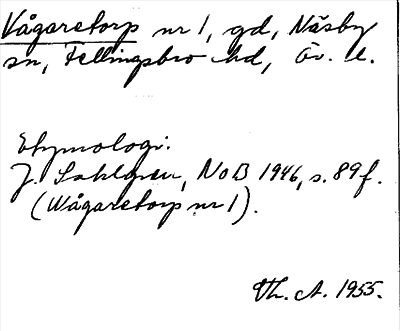 Vågaretorp nr 1, gd, Näsby
sn, Fellingsbro hd, Ör. l.
Etymologi:
J. Sahlgren, NoB 1946, s. 89 f.
(Wågaretorp nr 1).
Th. A. 1955.